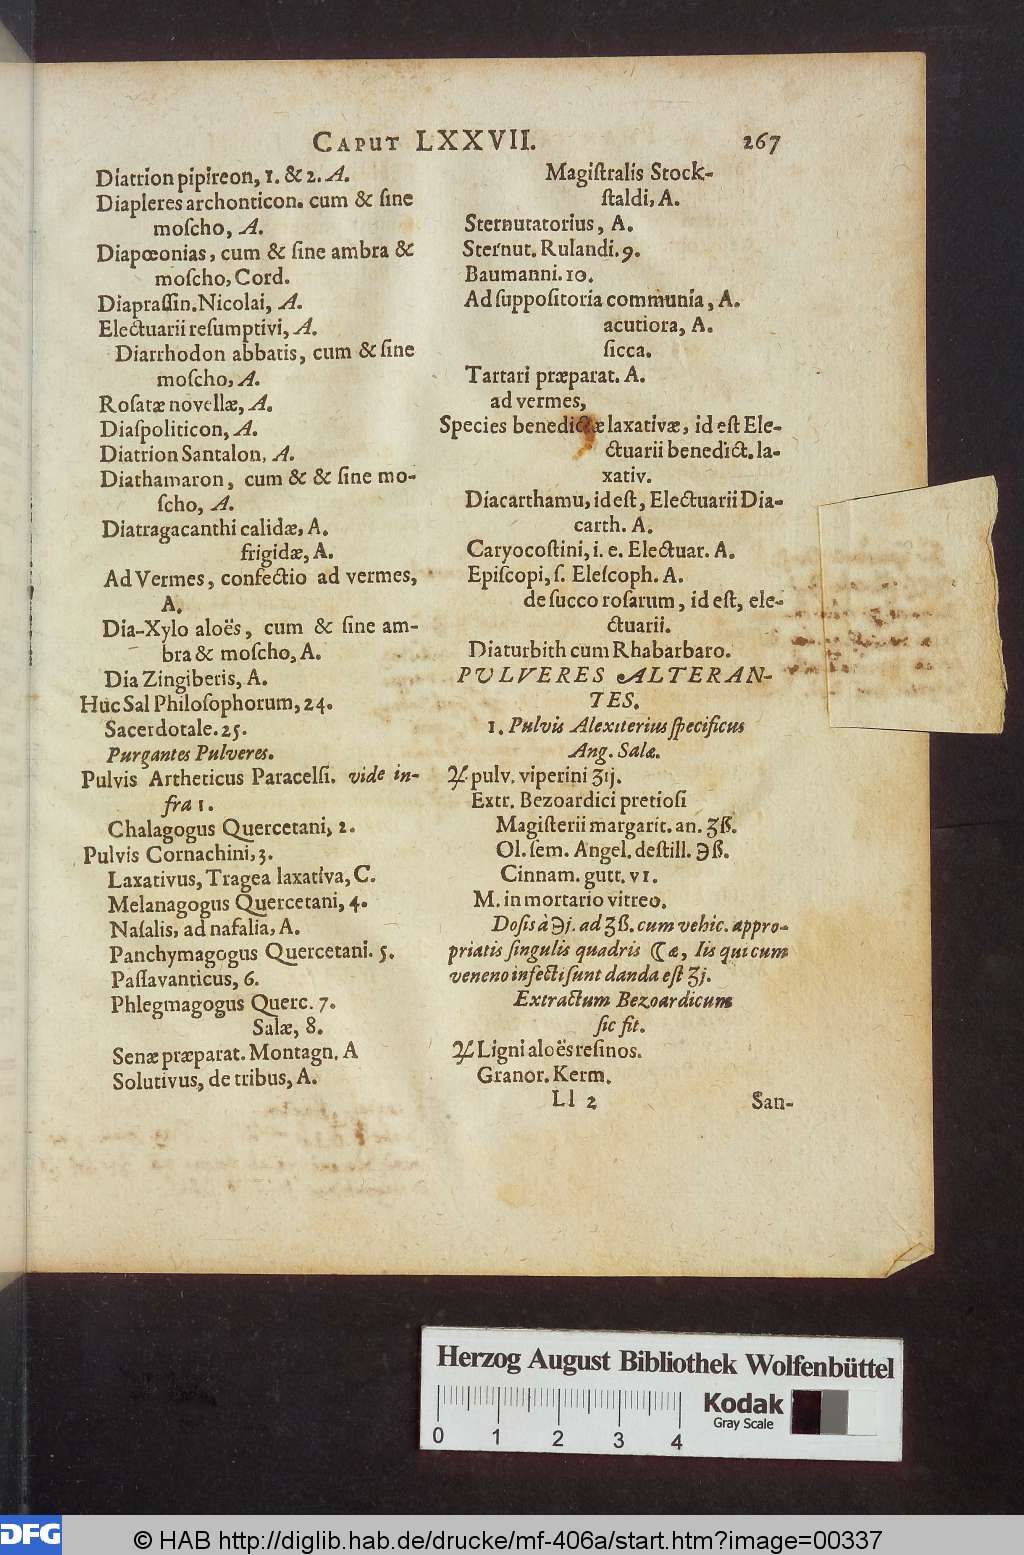 CAPUT LXXVII. 267
Diatrion pipireon, 1. & 2. A.
Diapleres archonticon. cum & ſine
moſcho, A.
Diapœonias, cum & ſine ambra &
moſcho, Cord.
Diapraſſin. Nicolai, A.
Electuarii reſumptivi, A.
Diarrhodon abbatis, cum & ſine
moſcho, A.
Roſatæ novellæ, A.
Diaſpoliticon, A.
Diatrion Santalon, A.
Diathamaron, cum & & ſine mo-
ſcho, A.
Diatragacanthi calidæ, A.
frigidæ, A.
Ad Vermes, confectio ad vermes,
A.
Dia-Xylo aloës, cum & ſine am-
bra & moſcho, A.
Dia Zingiberis, A.
Huc Sal Philoſophorum, 24.
Sacerdotale. 25.
Purgantes Pulveres.
Pulvis Artheticus Paracelſi. vide in-
fra 1.
Chalagogus Quercetani, 2.
Pulvis Cornachini, 3.
Laxativus, Tragea laxativa, C.
Melanagogus Quercetani, 4.
Naſalis, ad naſalia, A.
Panchymagogus Quercetani. 5.
Paſſavanticus, 6.
Phlegmagogus Querc. 7.
Salæ, 8.
Senæ præparat. Montagn. A
Solutivus, de tribus, A.
Magiſtralis Stock-
ſtaldi, A.
Sternutatorius, A.
Sternut. Rulandi. 9.
Baumanni. 10.
Ad ſuppoſitoria communia, A.
acutiora, A.
ſicca.
Tartari præparat. A.
ad vermes,
Species benedictæ laxativæ, id eſt Ele-
ctuarii benedict. la-
xativ.
Diacarthamu, id eſt, Electuarii Dia-
carth. A.
Caryocoſtini, i. e. Electuar. A.
Epiſcopi, ſ. Eleſcoph. A.
de ſucco roſarum, id eſt, ele-
ctuarii.
Diaturbith cum Rhabarbaro.
PULVERES ALTERAN-
TES.
1. Pulvis Alexiterius ſpecificus
Ang. Salæ.
♃ pulv. viperini ʒij.
Extr. Bezoardici pretioſi
Magiſterii margarit. an. ʒß.
Ol. ſem. Angel. deſtill. ℈ß.
Cinnam. gutt. VI.
M. in mortario vitreo.
Doſis à ℈j. ad ʒß. cum vehic. appro-
priatis ſingulis quadris ☾æ, Iis qui cum
veneno infecti ſunt danda eſt ʒj.
Extractum Bezoardicum
ſic fit.
♃ Ligni aloës reſinos.
Granor. Kerm.
Ll 2 San-
Herzog August Bibliothek Wolfenbüttel
Kodak
Gray Scale
0 1 2 3 4
DFG
© HAB http://diglib.hab.de/drucke/mf-406a/start.htm?image=00337